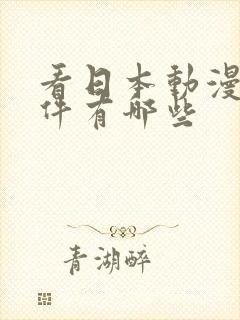 看日本動漫
件有哪些
青湖醉